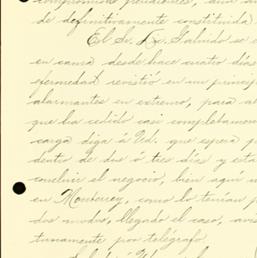 compromisos pecuniarios, aun an
de definitivamente constituida).
El Sr. Dr. Galindo se e
en cama desde hace cuatro días
efermedad revistió en un princip
alarmantes en extremo, para a
que ha cedido casi completamen
carga diga á Ud. que espera p
dentro de dos ó tres días y esta
concluir el negocio, bien aquí o
en Monterrey, como lo tenían p
dos modos, llegado el caso, avis
tunamente por telégrafo.